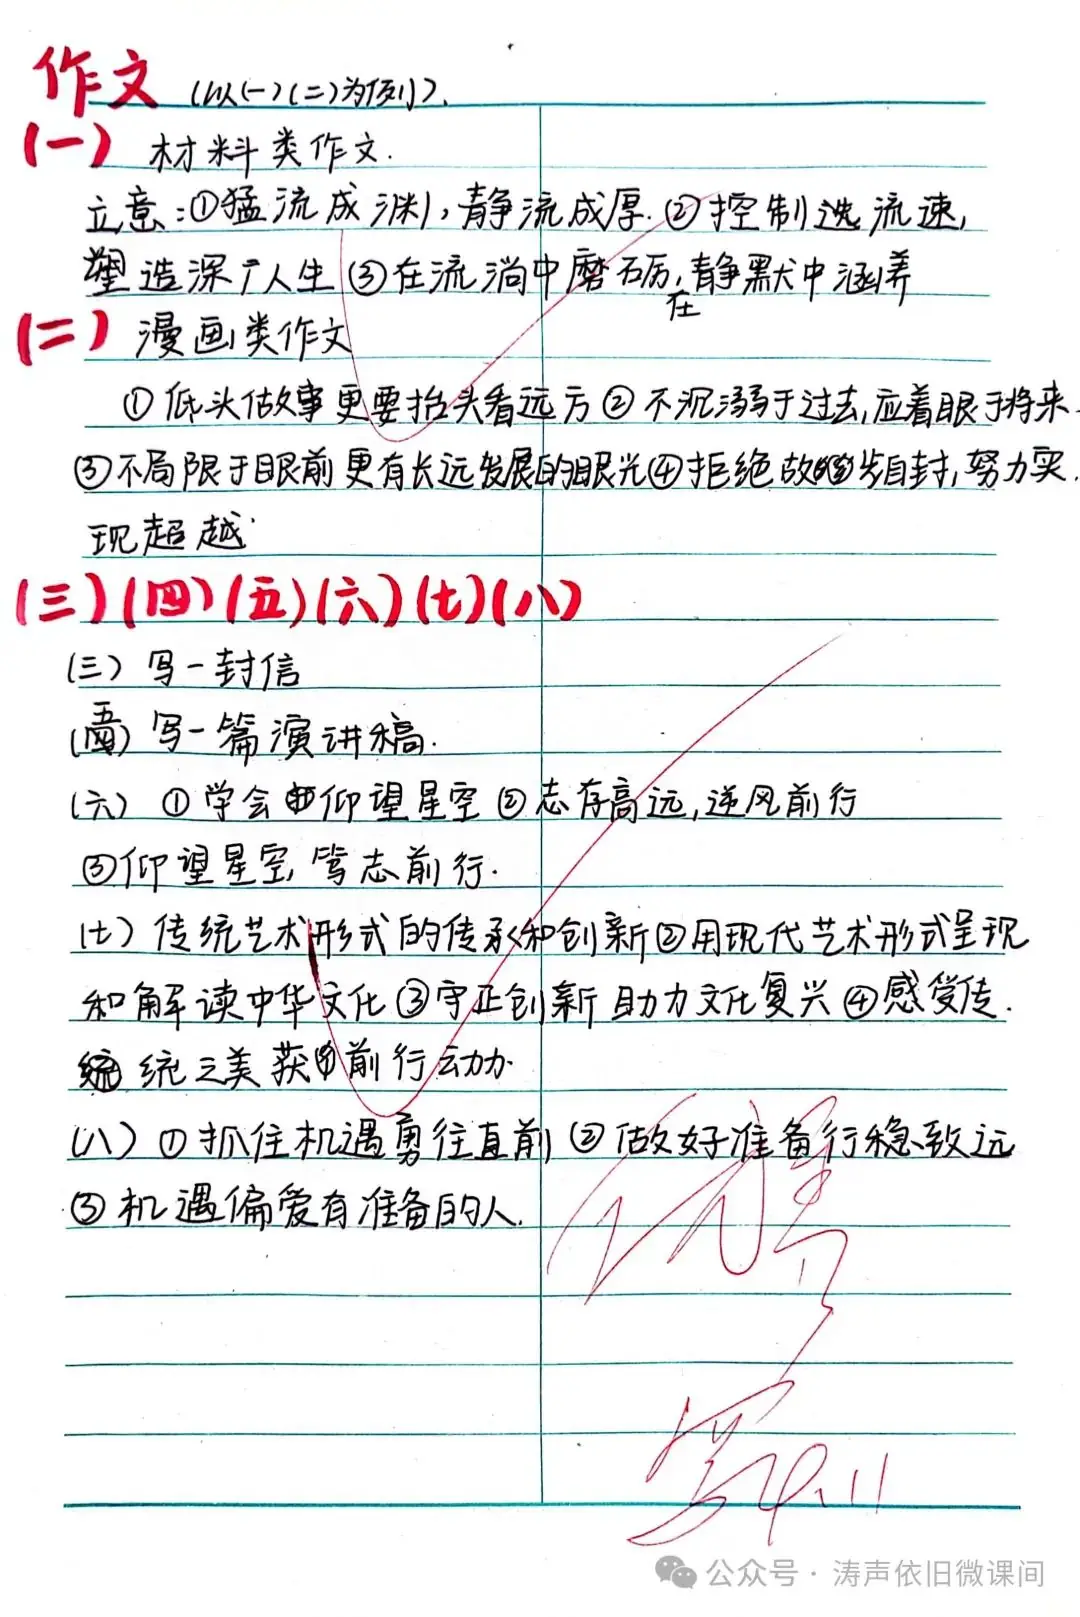 作文 (以(一)(二)为例).
(一) 材料类作文.
立意:①猛流成渊,静流成厚.②控制选流速,
塑造深广人生③在流淌中磨砺,在静默中涵养
(二) 漫画类作文
①低头做事更要抬头看远方②不沉溺于过去,应着眼于将来
③不局限于眼前更有长远发展的眼光④拒绝故步自封,努力实
现超越.
(三)(四)(五)(六)(七)(八)
(三)写一封信
(五)写一篇演讲稿.
(六)①学会仰望星空②志存高远,逆风前行
③仰望星空,笃志前行.
(七)传统艺术形式的传承和创新②用现代艺术形式呈现
和解读中华文化③守正创新 助力文化复兴④感受传
统之美获前行动力.
(八)①抓住机遇勇往直前②做好准备行稳致远
③机遇偏爱有准备的人.
优
4.11
公众号·涛声依旧微课间